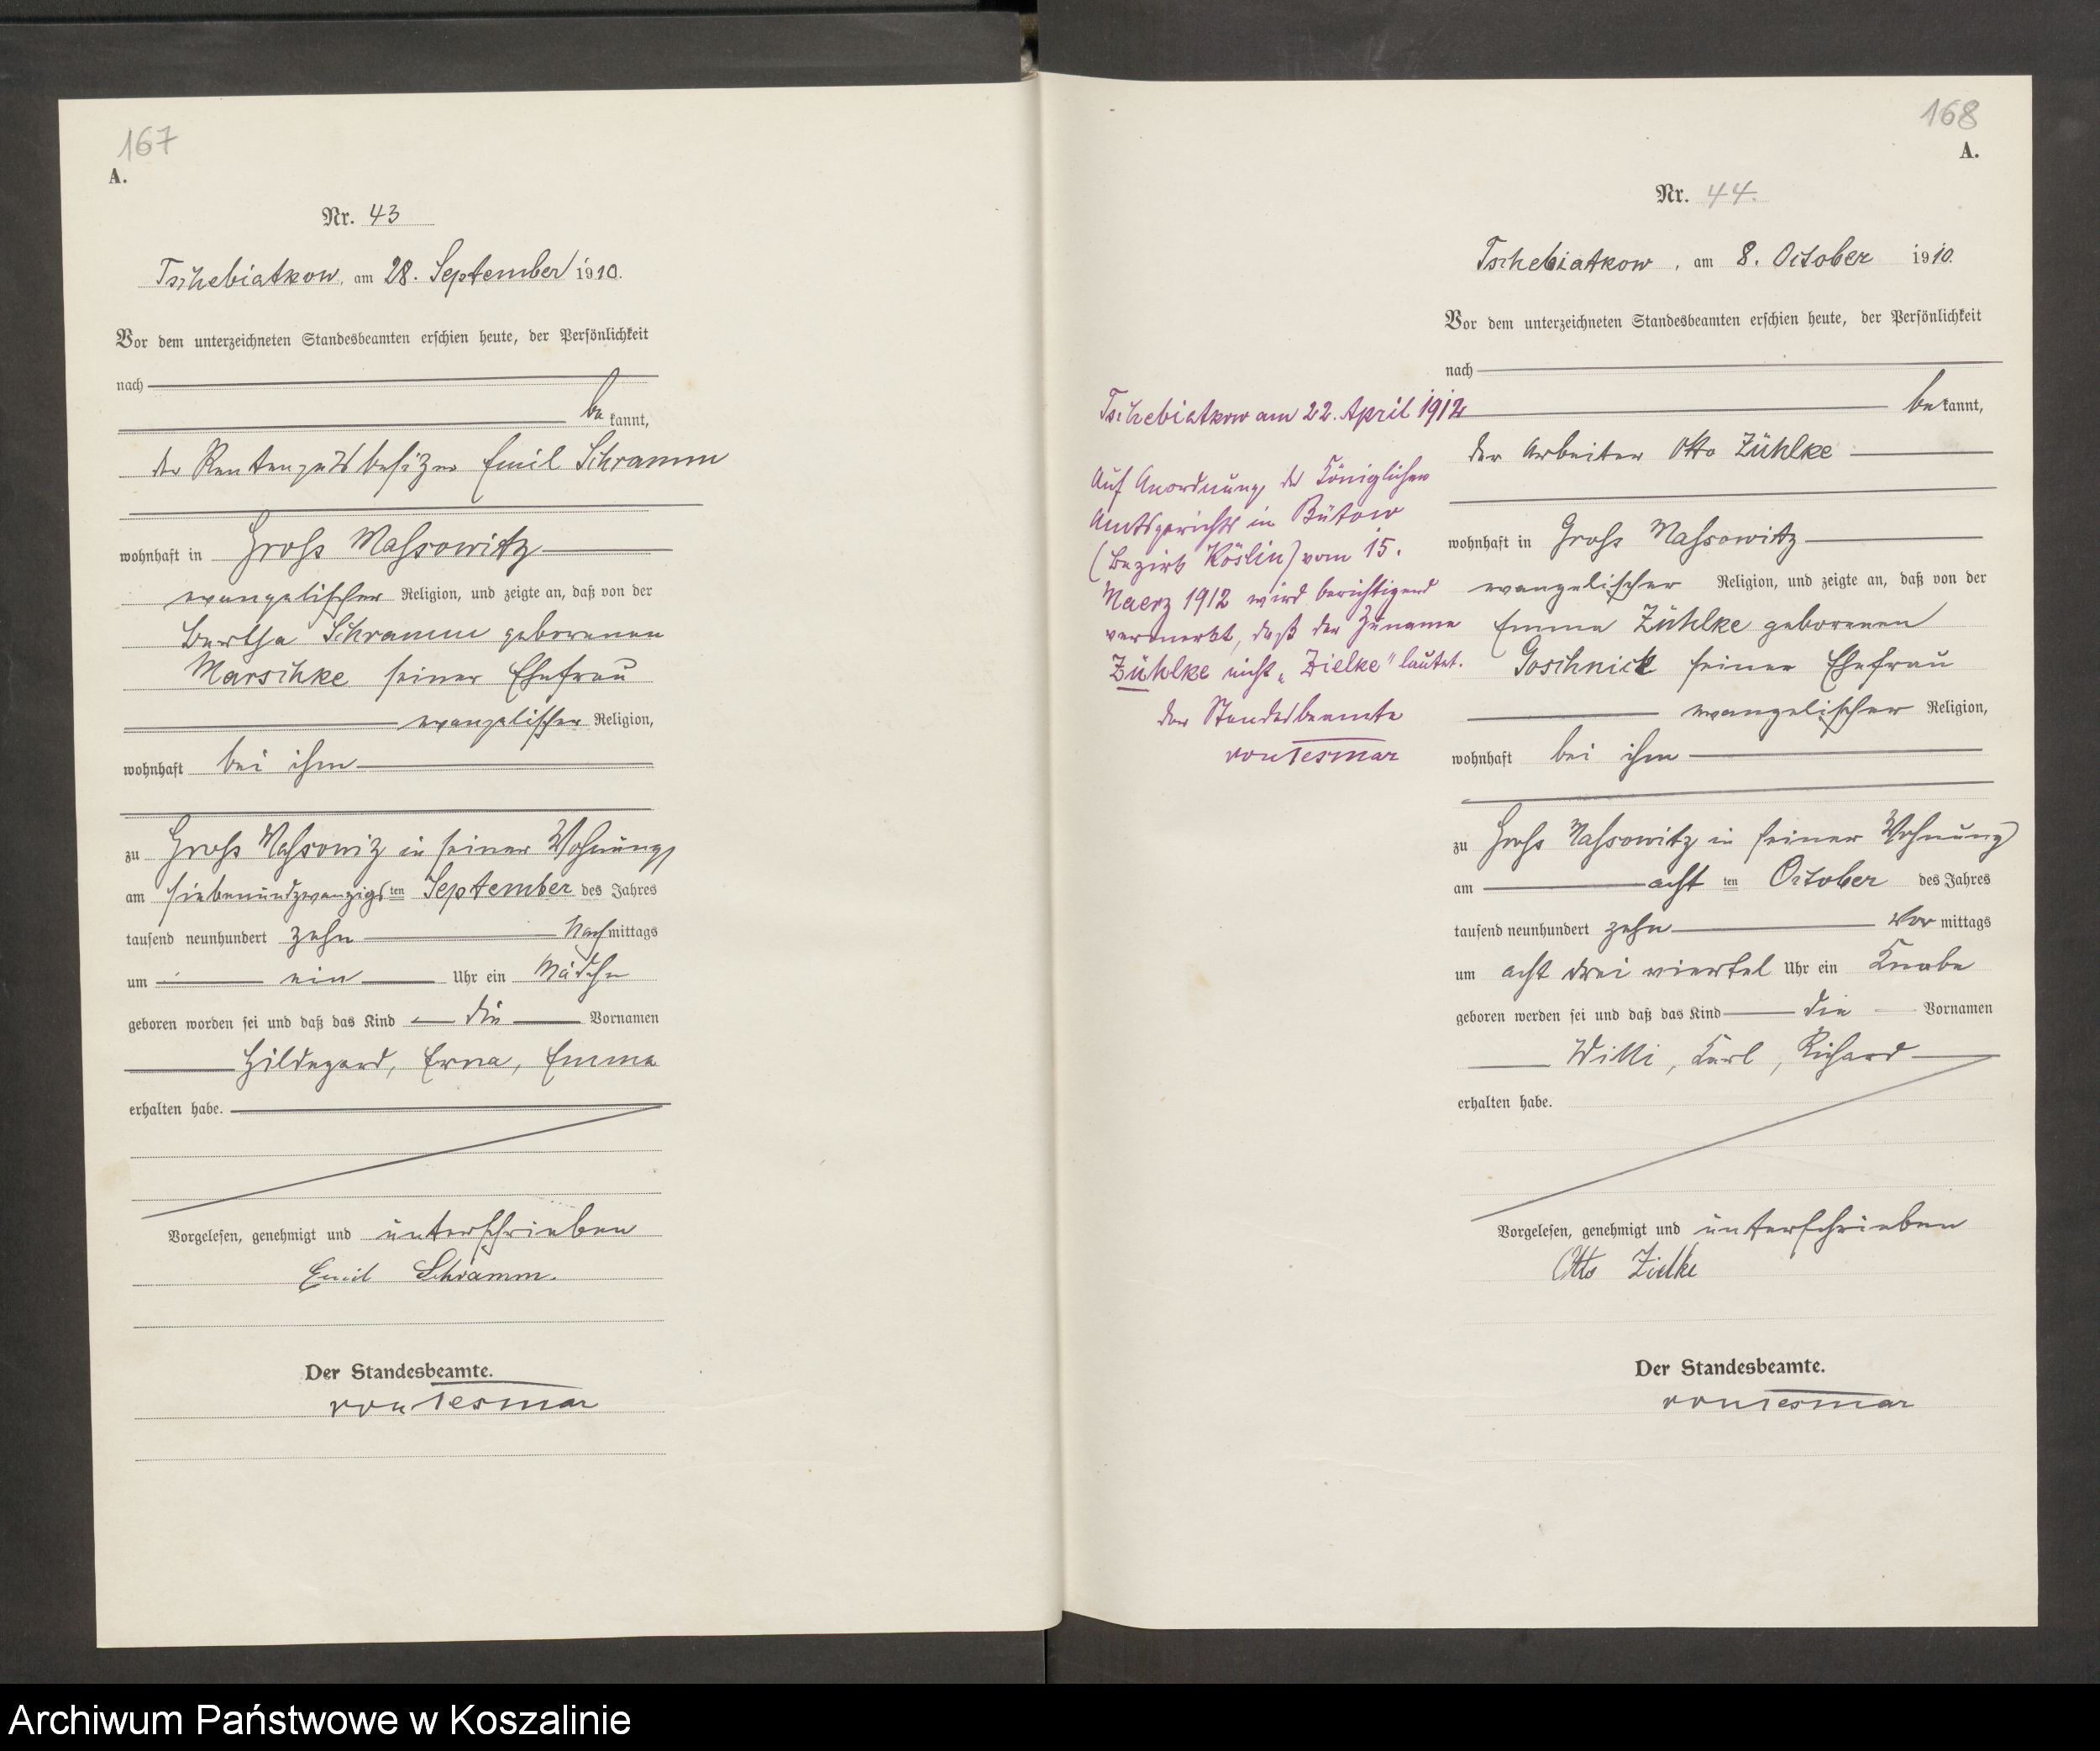 167
A.
Nr. 43
Tschebiatkow, am 28. September 1910.
Vor dem unterzeichneten Standesbeamten erschien heute, der Persönlichkeit
nach
be kannt,
der Rentengutsbesitzer Emil Schramm
wohnhaft in Gross Massowitz
evangelischer Religion, und zeigte an, daß von der
Bertha Schramm geborenen
Marschke seiner Ehefrau
evangelischer Religion,
wohnhaft bei ihm
zu Gross Massowitz in seiner Wohnung
am siebenundzwanzigsten September des Jahres
tausend neunhundert zehn Nachmittags
um ein Uhr ein Mädchen
geboren worden sei und daß das Kind die Vornamen
Hildegard, Erna, Emma
erhalten habe.
Vorgelesen, genehmigt und unterschrieben
Emil Schramm.
Der Standesbeamte.
von Tesmar
168
A.
Nr. 44.
Tschebiatkow, am 8. October 1910.
Vor dem unterzeichneten Standesbeamten erschien heute, der Persönlichkeit
nach
bekannt,
der Arbeiter Otto Zühlke
wohnhaft in Gross Massowitz
evangelischer Religion, und zeigte an, daß von der
Emma Zühlke geborenen
Goschnick seiner Ehefrau
evangelischer Religion,
wohnhaft bei ihm
zu Gross Massowitz in seiner Wohnung
am achtten October des Jahres
tausend neunhundert zehn Vormittags
um acht drei viertel Uhr ein Knabe
geboren werden sei und daß das Kind die Vornamen
Willi, Karl, Richard
erhalten habe.
Vorgelesen, genehmigt und unterschrieben
Otto Zielke
Der Standesbeamte.
von Tesmar
Tschebiatkow am 22. April 1912
Auf Anordnung des Königlichen
Amtsgerichts in Bütow
(Bezirk Köslin) vom 15.
Maerz 1912 wird berichtigend
vermerkt, daß der Zuname
Zühlke nicht „Zielke" lautet.
der Standesbeamte
von Tesmar
Archiwum Państwowe w Koszalinie